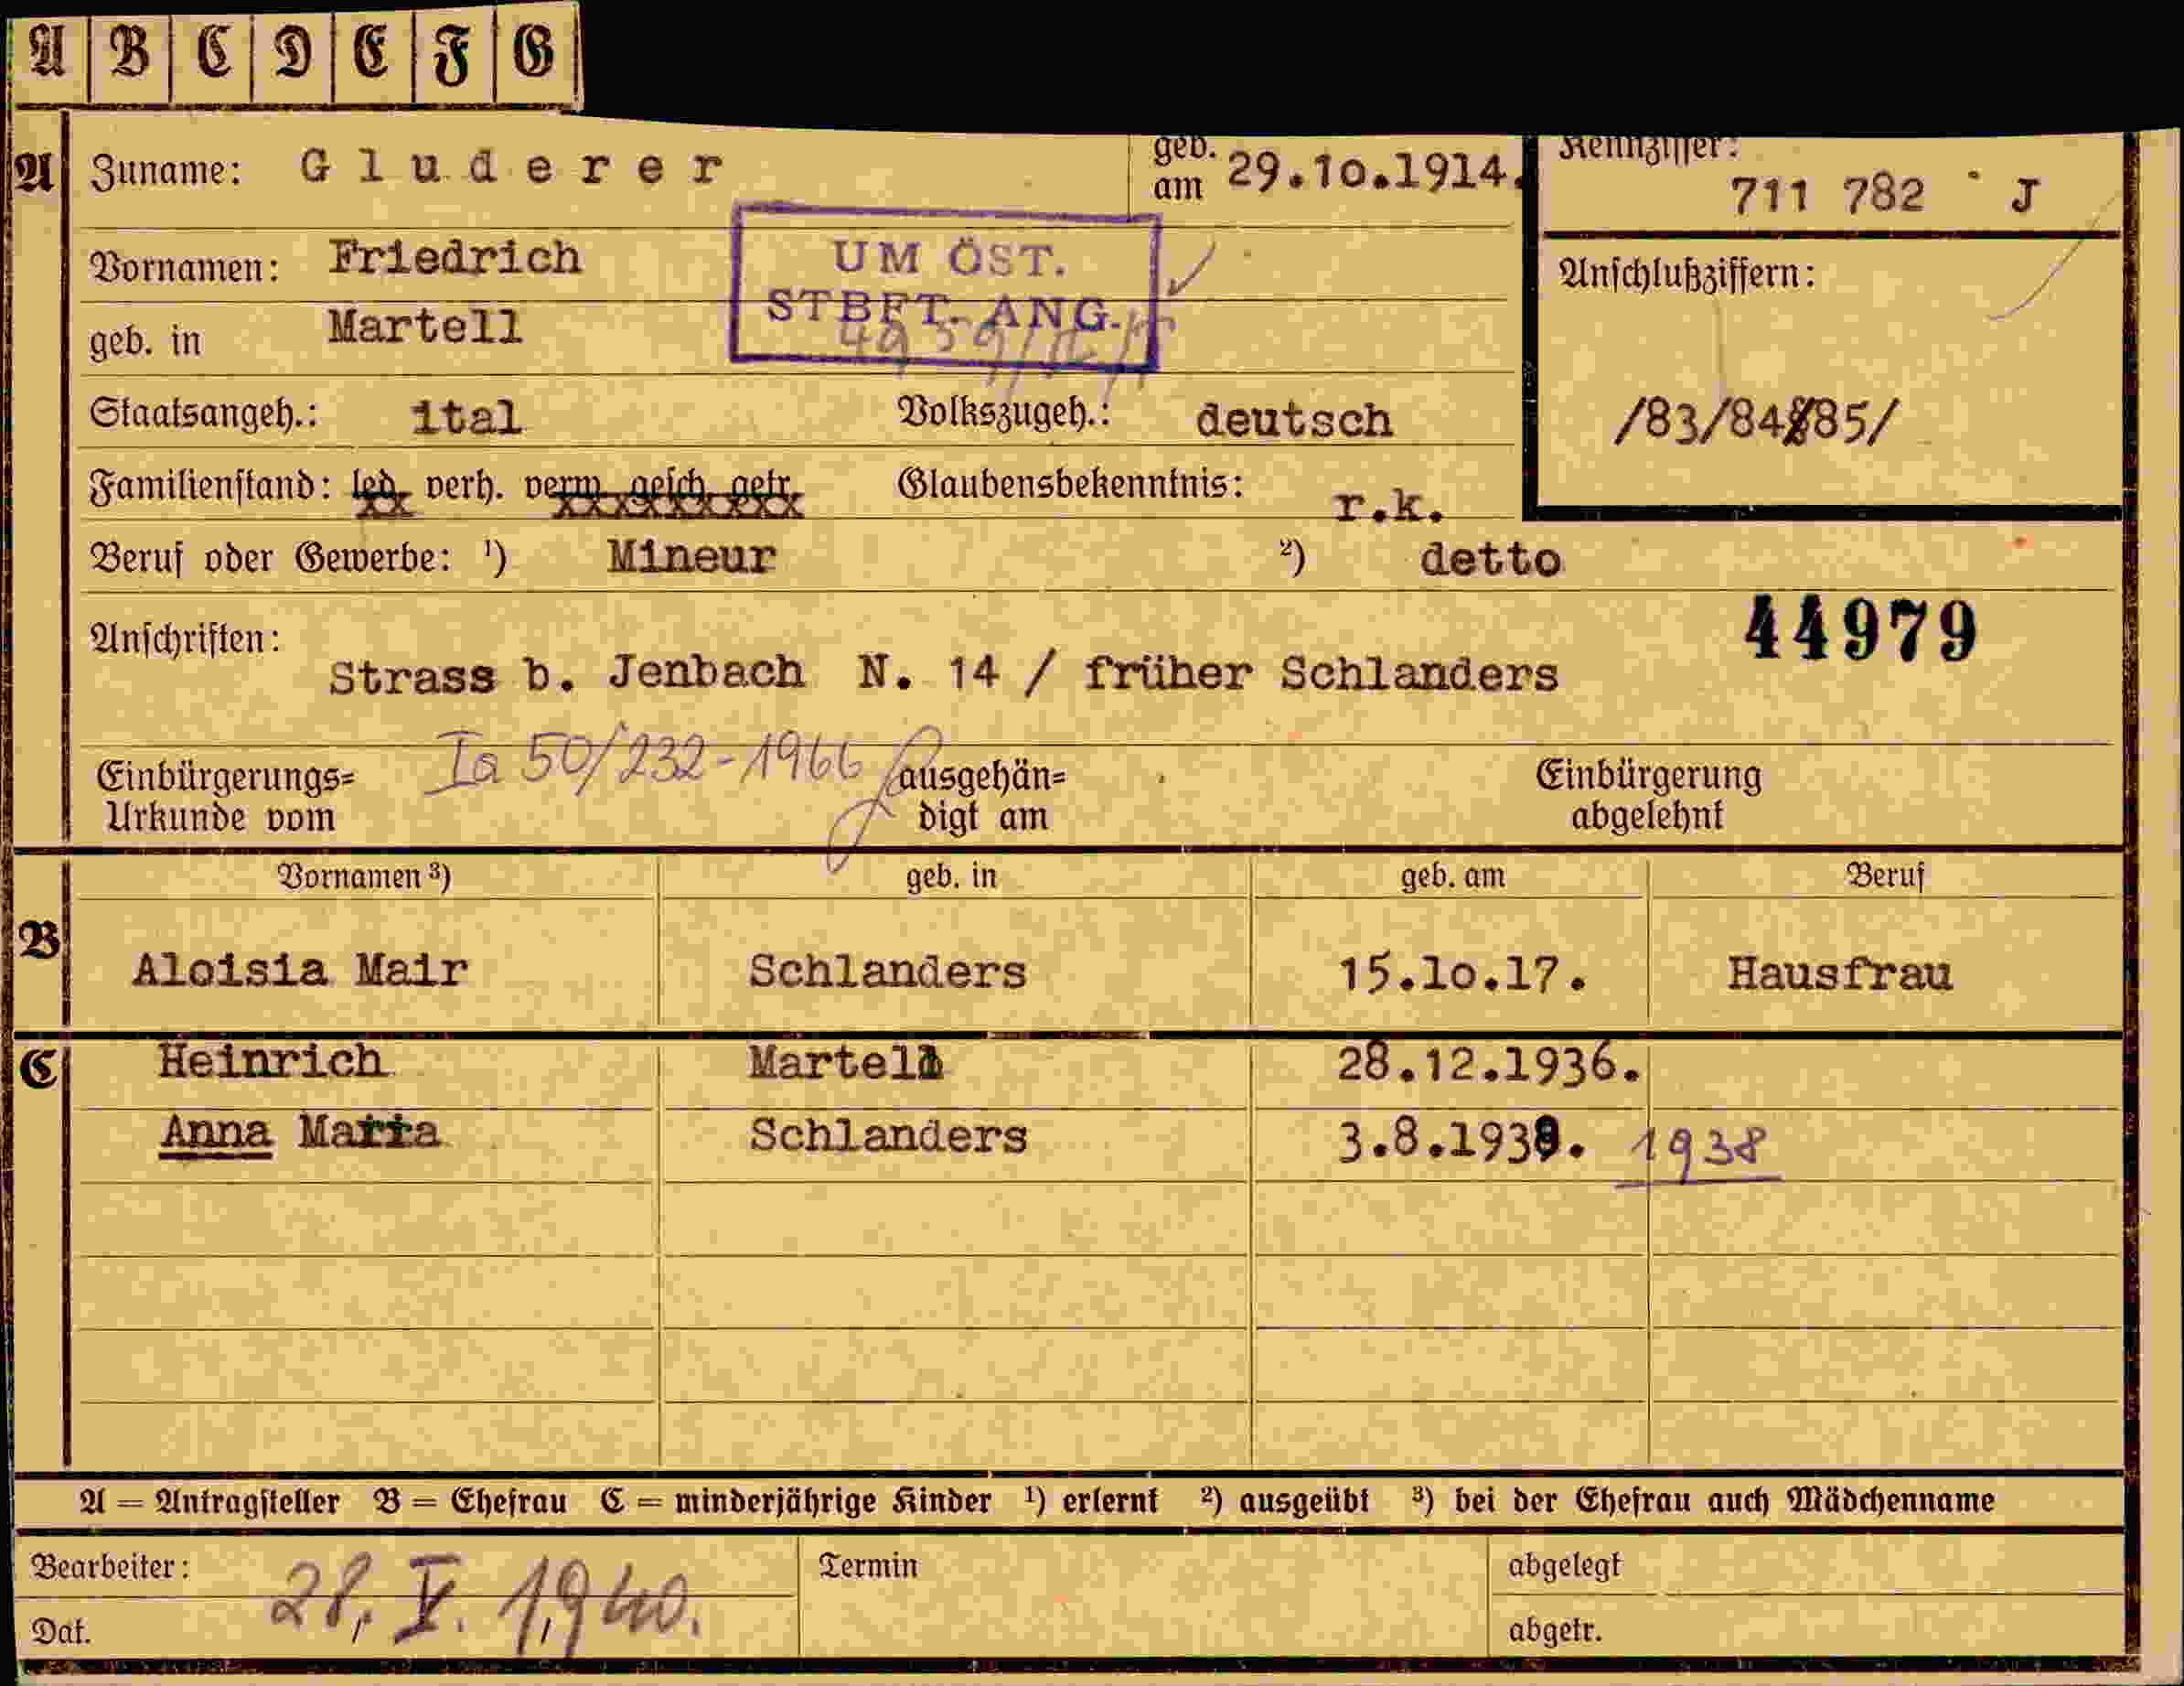 A B C D E F G
A Zuname: Gluderer geb. am 29.10.1914. Kennziffer: 711 782 J
Vornamen: Friedrich
UM ÖST. STBFT.-ANG.
Anschlußziffern:
geb. in Martell
Staatsangeh.: ital Volkszugeh.: deutsch /83/84/85/
Familienstand: led. verh. verw. gesch. getr. Glaubensbekenntnis: r.k.
Beruf oder Gewerbe: ¹) Mineur ²) detto
44979
Anschriften: Strass b. Jenbach N. 14 / früher Schlanders
Ia 50/232-1966
Einbürgerungs=Urkunde vom ausgehän=digt am Einbürgerung abgelehnt
Vornamen ³) geb. in geb. am Beruf
B Aloisia Mair Schlanders 15.10.17. Hausfrau
C Heinrich Martell 28.12.1936.
Anna Maria Schlanders 3.8.1938. 1938
A = Antragsteller B = Ehefrau C = minderjährige Kinder ¹) erlernt ²) ausgeübt ³) bei der Ehefrau auch Mädchenname
Bearbeiter: Termin abgelegt
28. V. 1940.
Dat. abgetr.